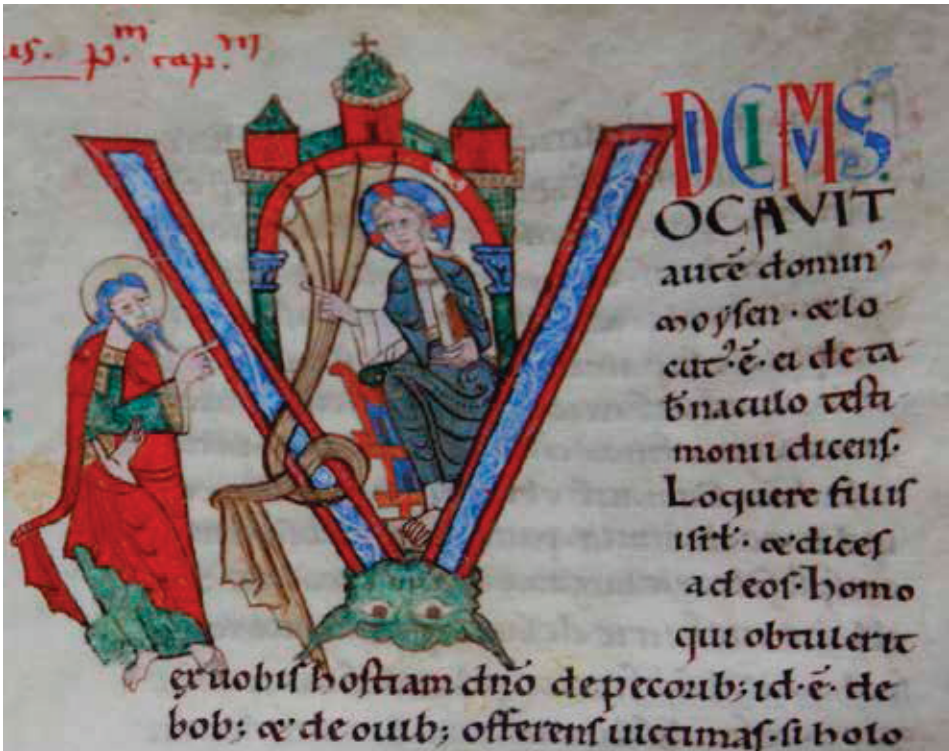 us. p.ᵐ cap.ᵐ
V DICIMVS.
OCAVIT
autē domin⁹
moysen · & lo
cut⁹ · ē · ei de ta
b̄naculo testi
monii dicens·
Loquere filiis
isrł · & dices
ad eos · homo
qui obtulerit
ex uobis hostiam dn̄o de pecorib; id · ē · de
bob; & de ouib; offerens uictimas · si holo